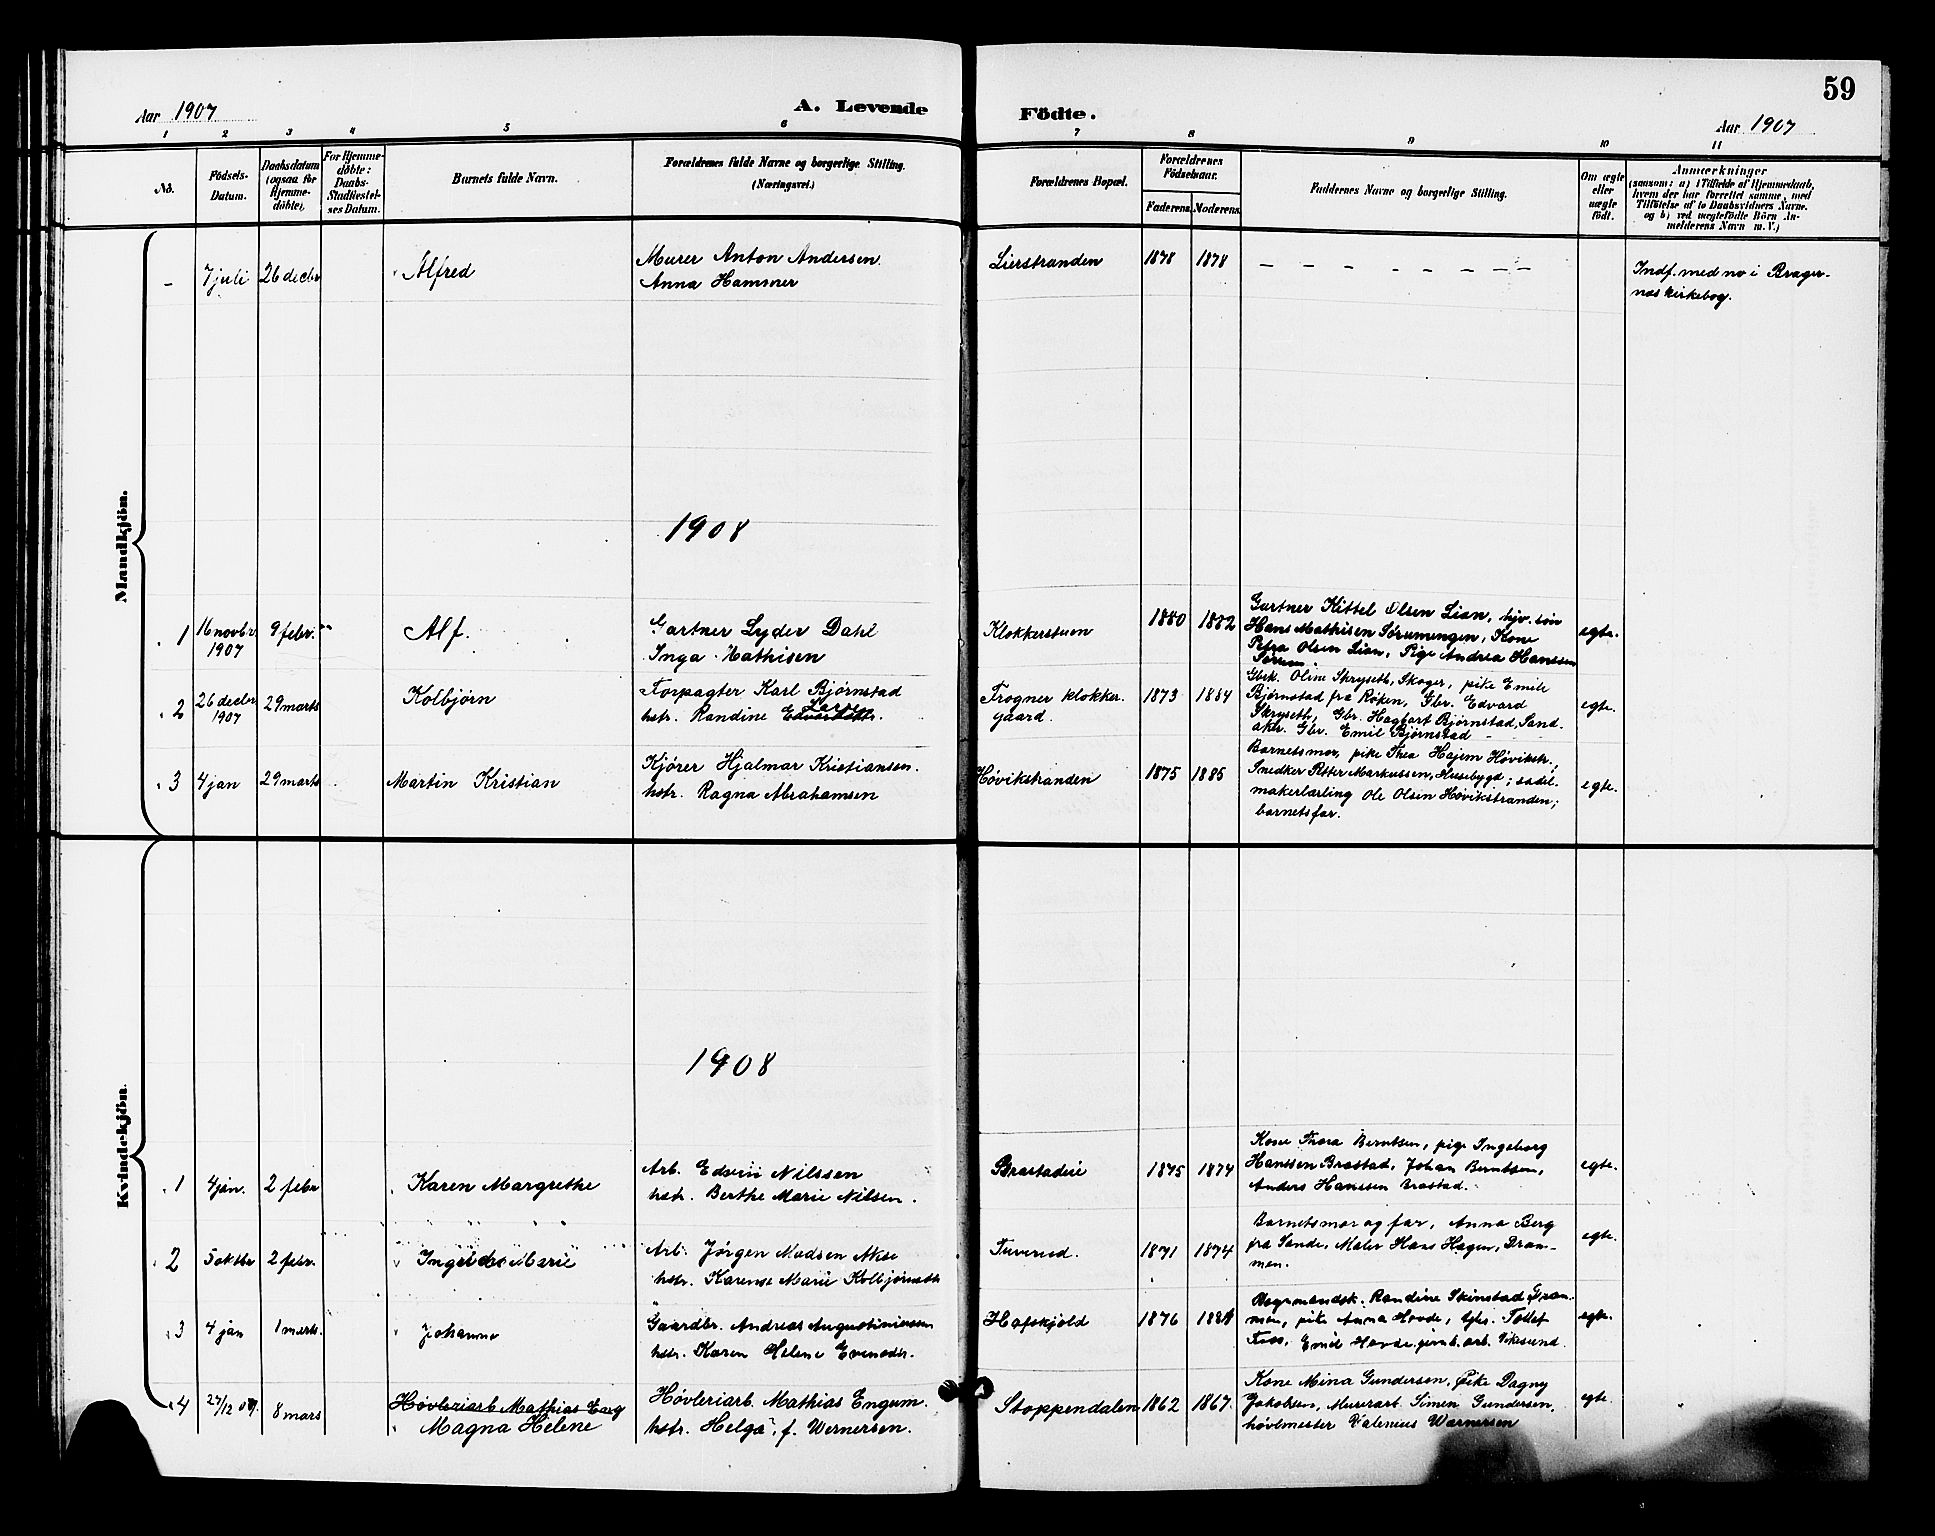 59
Aar 1907
A. Levende
Fødte.
Aar 1907
1 2 3 4 5 6 7 8 9 10 11
No.
Fødsels-Datum.
Daabsdatum (ogsaa for Hjemme-døbte).
For Hjemme-døbte: Daabs-Stadfæstel-ses Datum.
Barnets fulde Navn.
Forældrenes fulde Navne og borgerlige Stilling. (Næringsvei.)
Forældrenes Bopæl.
Forældrenes Fødselsaar.
Faderens. Moderens.
Faddernes Navne og borgerlige Stilling.
Om ægte eller uægte født.
Anmærkninger
(saasom: a) i Tilfælde af Hjemmedaab,
hvem der har forrettet samme, med
Tilføielse af to Daabsvidners Navne.
og b) ved uægtefødte Børn An-
melderens Navn m. V.)
Mandkjøn.
– 7 juli 26 decbr Alfred
Murer Anton Andersen.
Anna Hamsner
Lierstranden 1878 1878 – – – – – – – –
Indf. med no i Brager-
næs kirkebog.
1908
1 16 novbr. 1907 9 febr. Alf.
Gartner Lyder Dahl
Inga Mathisen
Klokkerstuen 1880 1882
Gartner Kittel Olsen Lian,
Hans Mathisen Sørumengen, Kone
Petra Olsen Lian, Pige Andrea Hanssen
Sørum.
egte.
2 26 decbr 1907 29 marts Kolbjørn
Forpagter Karl Bjørnstad
hstr. Randine Larsen
Frogner klokker-
gaard. 1873 1884
Gbsk. Oline Skryseth, Skoger, pike Emile
Bjørnstad fra Røken, Gbr. Edvard
Skryseth, Gbr. Hagbart Bjørnstad, Sand-
aker. Gbr. Emil Bjørnstad –
egte.
3 4 jan 29 marts Martin Kristian
Kjører Hjalmar Kristiansen.
hstr. Ragna Abrahamsen
Høvikstranden 1875 1885
Barnetsmor, pike Thea Hajem Høvikstr.,
Snedker Petter Markussen, Husebygd; sadel-
makerlærling Ole Olsen Høvikstranden;
barnetsfar.
egte.
Kvindekjøn.
1908
1 4 jan. 2 febr Karen Margrethe
Arb. Edvin Nilssen
hstr. Berthe Marie Nilsen.
Brastadeie 1875 1874
Kone Thora Berntsen, pige Ingeborg
Hanssen Brastad, Johan Berntsen,
Anders Hanssen Brastad.
egte.
2 5 oktbr 2 febr. Marie
Arb. Jørgen Madsen
hstr. Karense Marie Kolbjørnsdtr
Tuverud. 1871 1874
Barnetsmor og far, Anna Berg
fra Sande, Maler Hans Hagen, Dram-
men.
egte.
3 4 jan 1 marts. Johanne
Gaardbr. Andreas Augustiniussen
hstr. Karen Helene Evensdtr.
Hafskjold 1876 1881
Randine Skinstad Dram-
men, pike Anna Hovde, Tollef
Foss, Emil Hovde jernb. arb. Vikesund.
egte.
4 27/12 07. 8 mars Høvleriarb. Mathias Eng
Magna Helene
Høvleriarb. Mathias Engum.
hstr. Helga, f. Wernersen.
Stoppendalen 1862 1867.
Kone Mina Gundersen, Pike Dagny
Jakobsen, Murerarb. Simen Gundersen,
høvlmester Valenius Warnersen
egte.